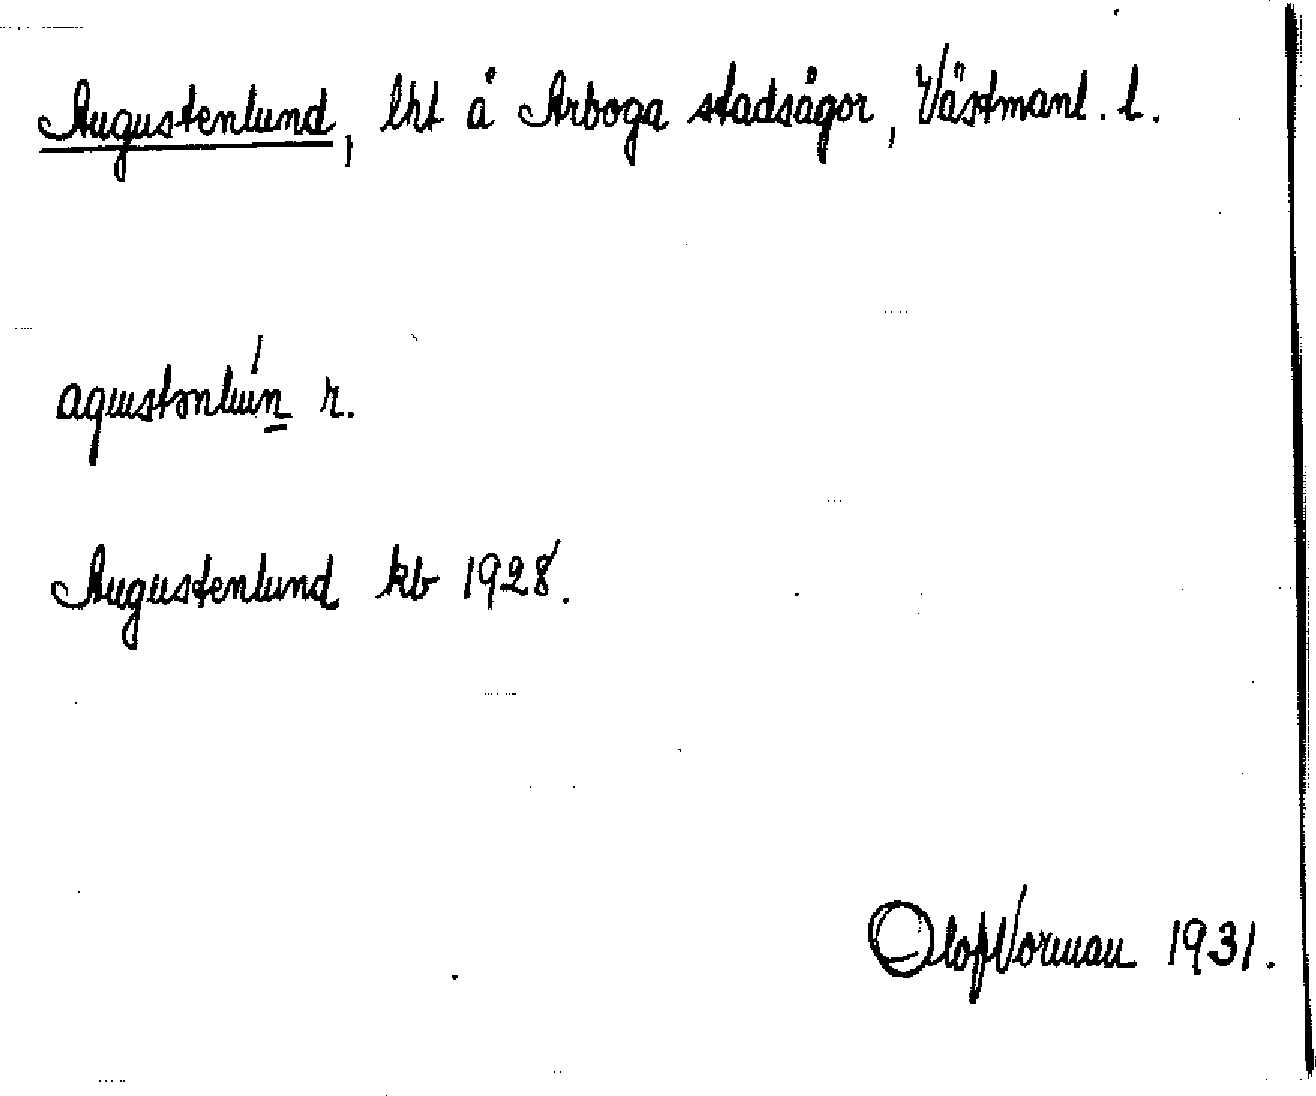 Augustenlund, lht å Arboga stadsägor, Västmanl. l.
agustənlún r.
Augustenlund kb 1928.
Olof Norman 1931.